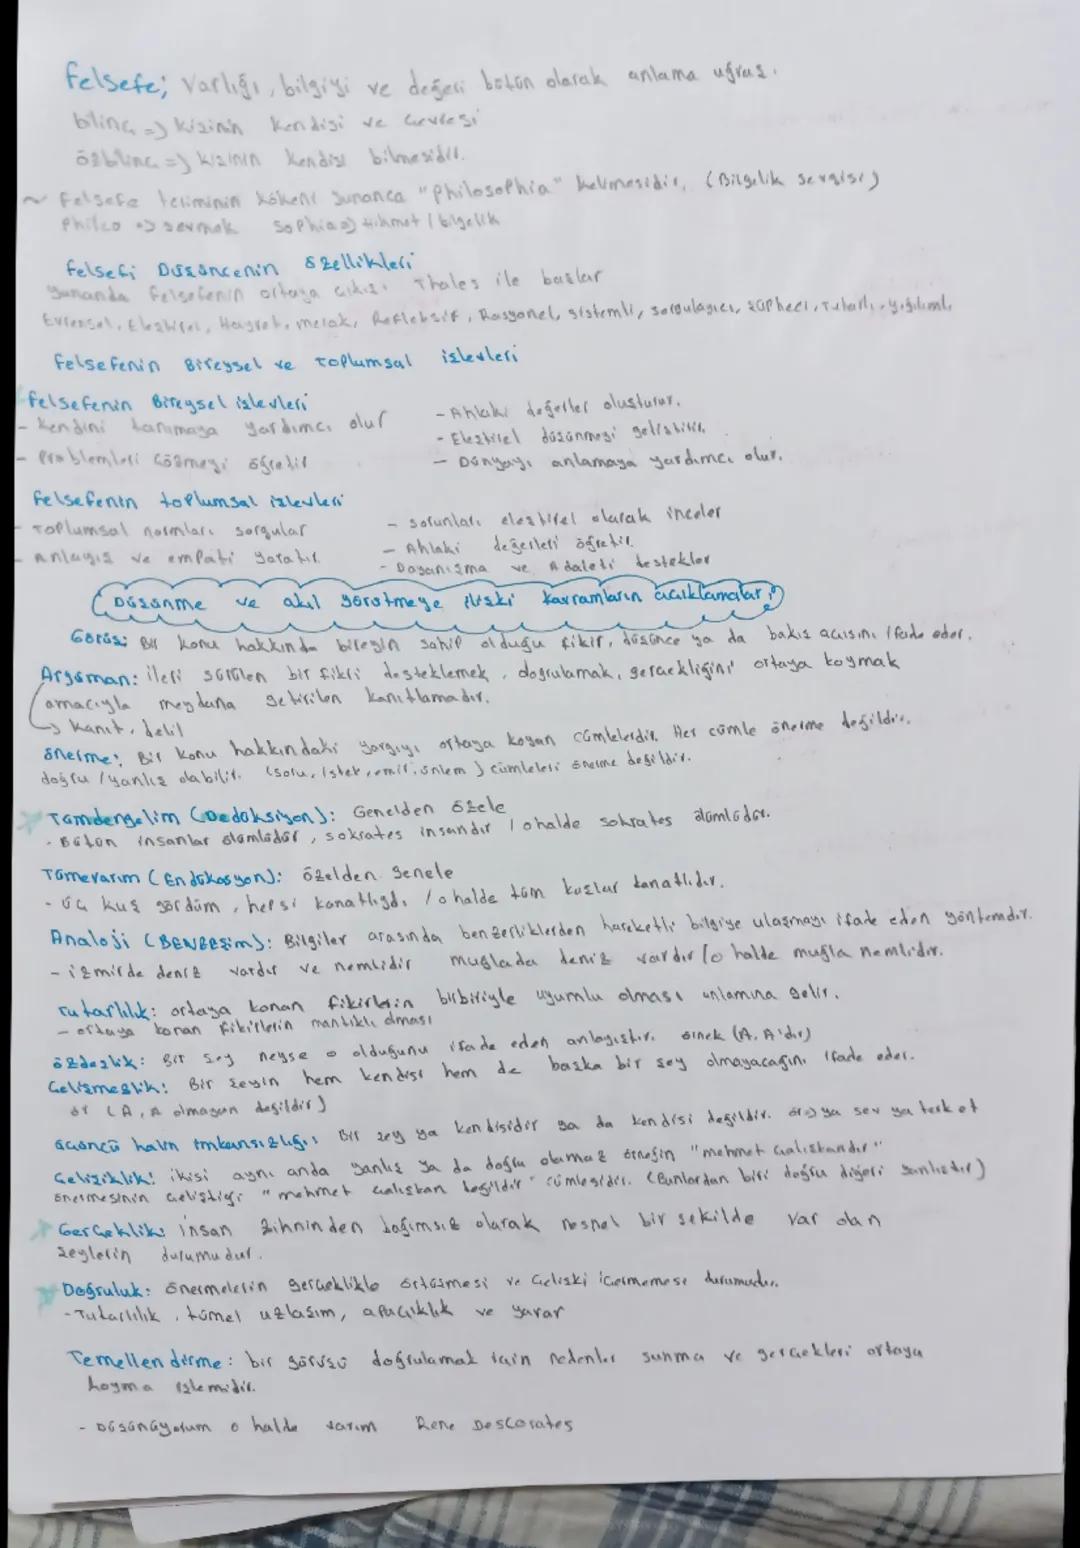 Felsefe; Varlığı, bilgiyi ve değeri bütün olarak anlama uğraşı.
bilinç => kişinin kendisi ve çevresi
özbilinç => kişinin kendisi bilmesidir.
~ Felsefe teriminin kökeni yunanca "Philosophia" kelimesidir. (Bilgelik sevgisi)
Phileo => sevmek Sophia => hikmet / bilgelik
Felsefi Düşüncenin özellikleri
Yunanda felsefenin ortaya çıkışı Thales ile başlar
Evrensel, Eleştirel, Hayret, merak, Refleksif, Rasyonel, sistemli, sorgulayıcı, şüpheci, Tutarlı, yığılımlı
Felsefenin Bireysel ve Toplumsal işlevleri
Felsefenin Bireysel işlevleri
- Kendini tanımaya yardımcı olur - Ahlaki değerler oluşturur.
- Problemleri çözmeyi öğretir - Eleştirel düşünmeyi geliştirir.
- Dünyayı anlamaya yardımcı olur.
Felsefenin toplumsal işlevleri
- Toplumsal normları sorgular - sorunları eleştirel olarak inceler
- Anlayış ve empati yaratır - Ahlaki değerleri öğretir.
- Dayanışma ve Adaleti destekler
Düşünme ve akıl yürütmeye ilişki kavramların açıklamaları
Görüş: Bir konu hakkında bireyin sahip olduğu fikir, düşünce ya da bakış açısını ifade eder.
Argüman: ileri sürülen bir fikri desteklemek, doğrulamak, gerçekliğini ortaya koymak
amacıyla meydana getirilen kanıtlamadır.
-> Kanıt, delil
önerme: Bir konu hakkındaki yargıyı ortaya koyan cümlelerdir. Her cümle önerme değildir.
doğru / yanlış olabilir. (soru, istek, emir, ünlem) cümleleri önerme değildir.
Tümdengelim (Dedüksiyon): Genelden özele
- Bütün insanlar ölümlüdür, sokrates insandır / ohalde sokrates ölümlüdür.
Tümevarım (Endüksyon): özelden genele
- üç kuş gördüm, hepsi kanatlıydı / o halde tüm kuşlar kanatlıdır.
Analoji (BENZEŞim): Bilgiler arasında benzerliklerden hareketli bilgiye ulaşmayı ifade eden yöntemdir.
- izmirde deniz vardır ve nemlidir muğlada deniz vardır / o halde muğla nemlidir.
Tutarlılık: ortaya konan fikirlerin birbiriyle uyumlu olması anlamına gelir.
- ortaya konan fikirlerin mantıklı olması
özdeşlik: Bir şey neyse o olduğunu ifade eden anlayıştır. örnek (A, A'dır)
Çelişmezlik: Bir şeyin hem kendisi hem de başka bir şey olmayacağını ifade eder.
ör (A, A olmayan değildir)
üçüncü halin imkansızlığı: Bir şey ya kendisidir ya da kendisi değildir. ör => ya sev ya terk et
Çelişiklik: ikisi aynı anda yanlış ya da doğru olamaz örneğin "mehmet çalışkandır"
önermesinin çeliştiği "mehmet çalışkan değildir" cümlesidir. (Bunlardan biri doğru diğeri yanlıştır)
Gerçeklik: insan zihninden bağımsız olarak nesnel bir şekilde var olan
şeylerin durumudur.
Doğruluk: önermelerin gerçeklikle örtüşmesi ve Çelişki içermemesi durumudur.
- Tutarlılık, tümel uzlaşım, apaçıklık ve yarar
Temellendirme: bir görüşü doğrulamak için nedenler sunma ve gerçekleri ortaya
koyma işlemidir.
- Düşünüyorum o halde varım Rene Descorates